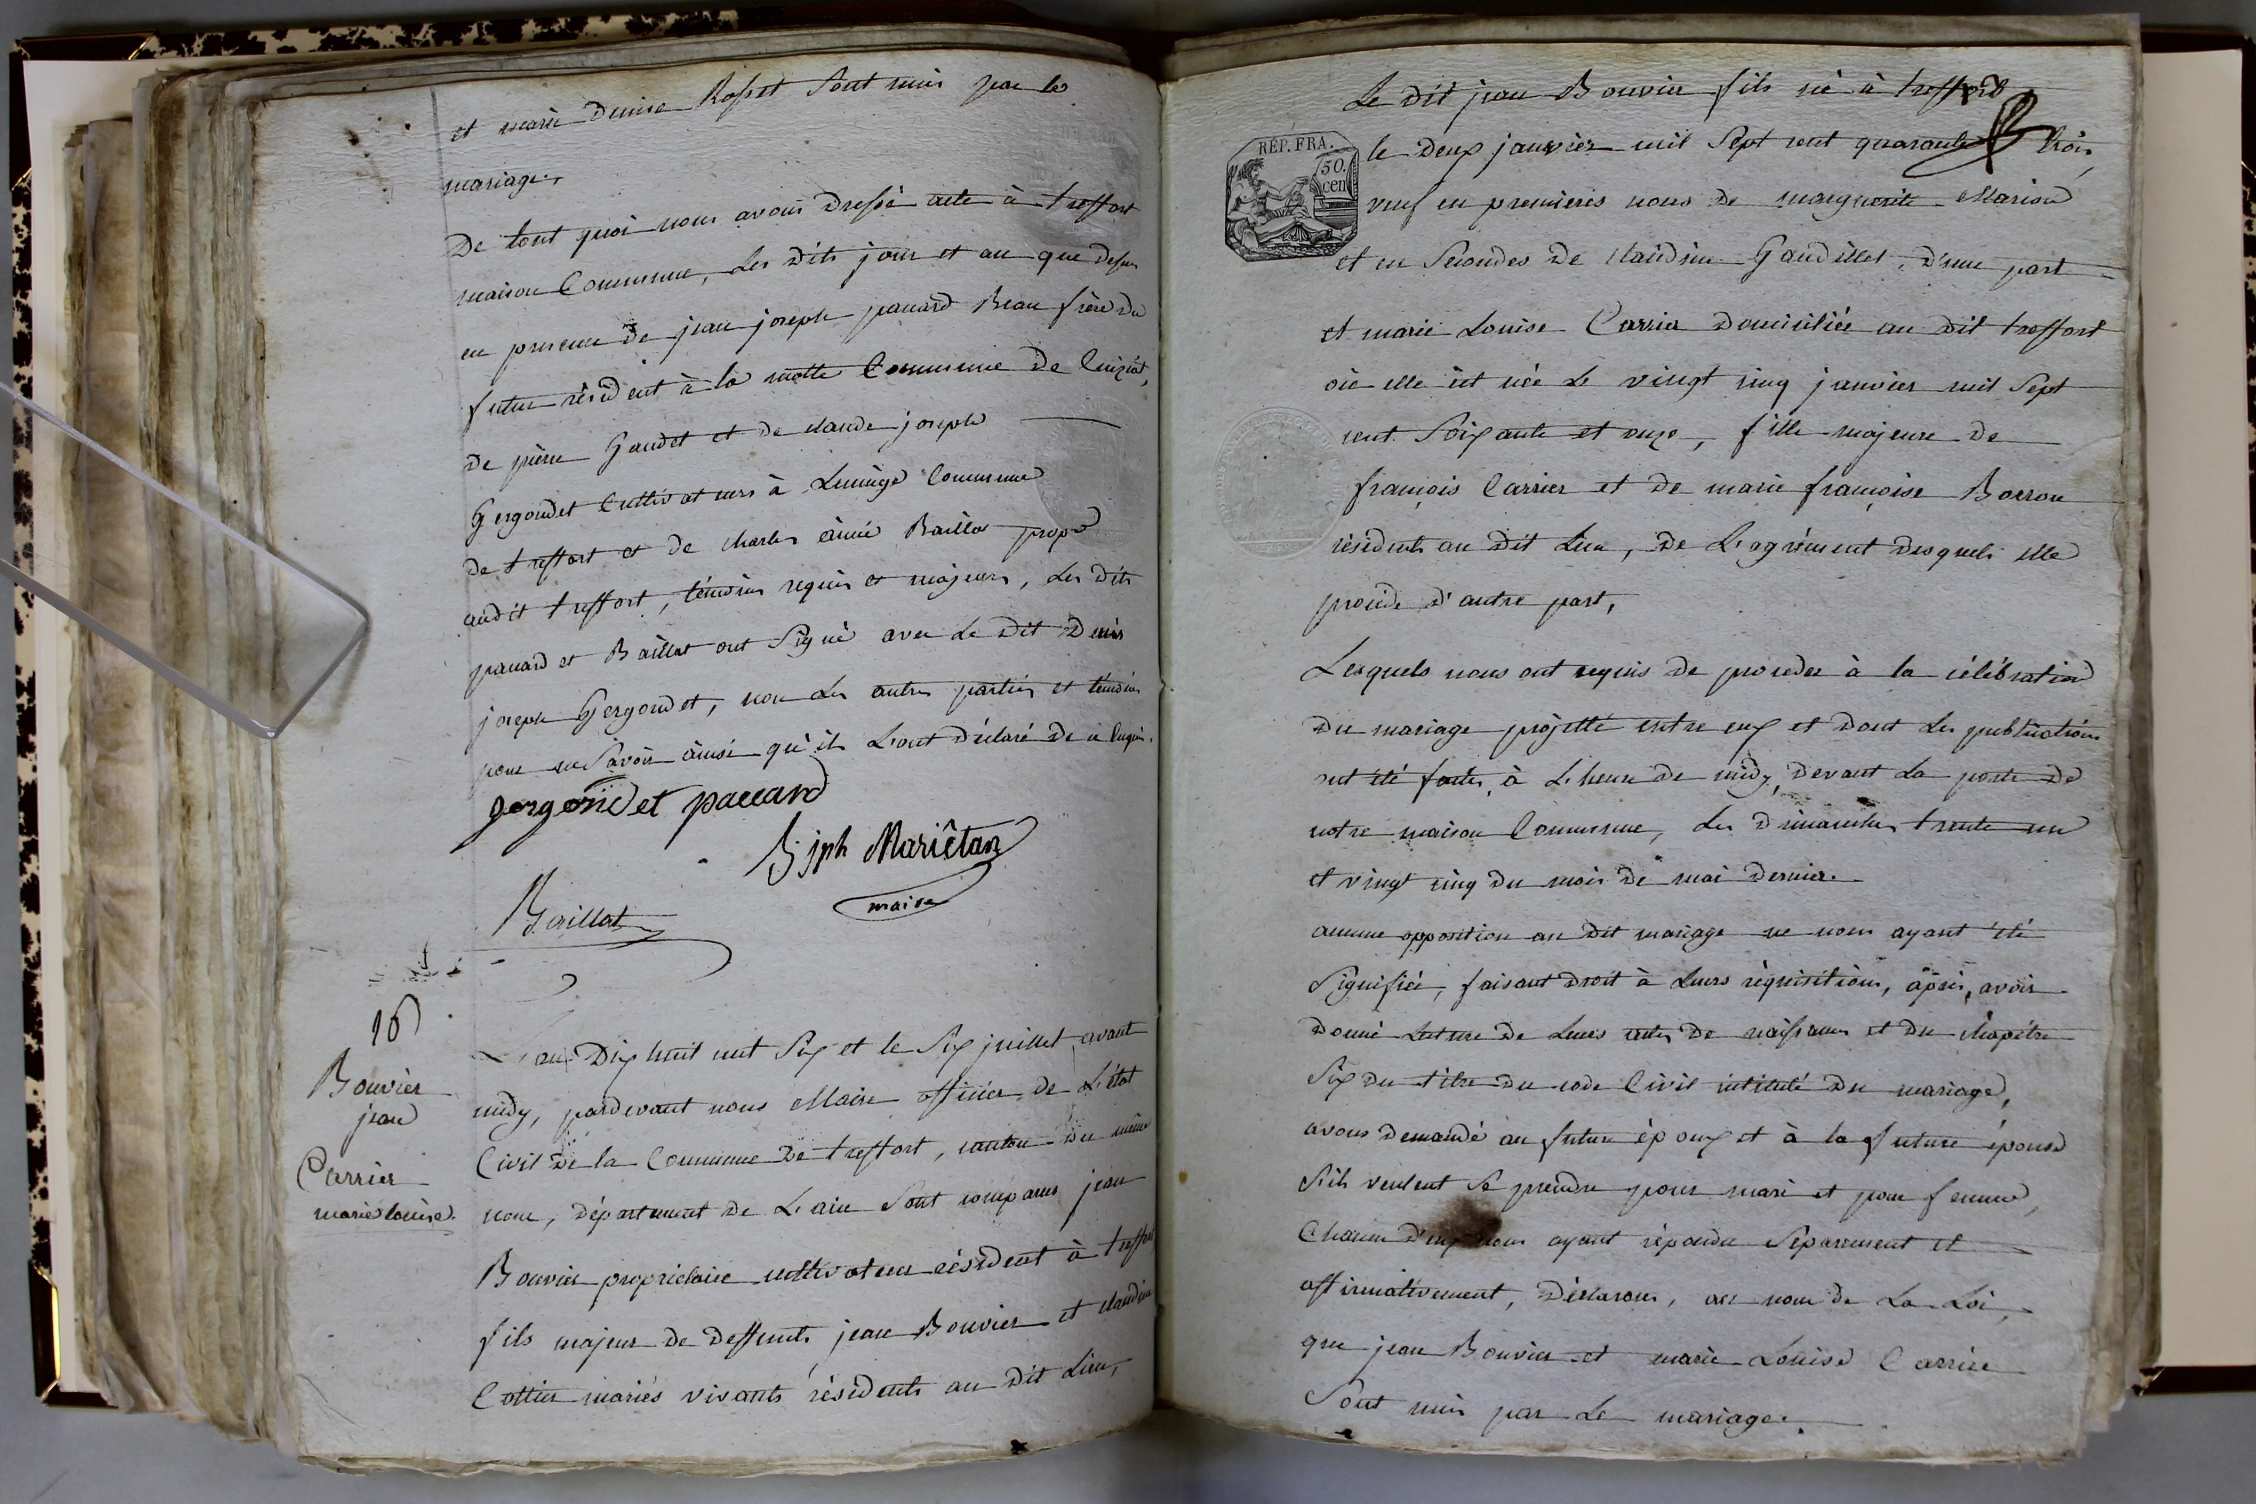 et marie Denise Rosset Sont unis par le
mariage.
De tout quoi nous avons dressé acte à treffort
maison Commune, Les Dits jour et an que dessus
en presence de jean joseph paccard Beau frère du
futur résident à la motte Commune de Cuiziat,
de pierre Gaudet et de claude joseph
Gergondet Cultivateurs à Lucinge Commune
de treffort et de charles aimé Baillat prop.re
audit treffort, témoins requis et majeurs, Les Dits
paccard et Baillat ont Signé avec Le Dit Denis
joseph Gergondet, non Les autres parties et témoins
pour ne Savoir ainsi qu'ils L'ont Déclaré De ce Enquis.
gergondet paccard
B jph Mariêtan
maire
Baillat
16
Bouvier
jean
Carrier
marie louise.
L'an Dix huit cent Six et le Six juillet avant
midy, pardevant nous Maire officier de L'état
Civil de la Commune De treffort, canton du même
nom, département de L'ain Sont comparus jean
Bouvier propriétaire cultivateur résident à treffort
fils majeur de deffunts jean Bouvier et claudine
Cottier mariés vivants résidents au dit Lieu,
Le dit jean Bouvier fils né à treffort
RÉP. FRA.
50.
cen
le deux janvier mil Sept cent quarante trois,
veuf en premières noces de marguerite Marion
et en Secondes de claudine Gaudillet, d'une part
et marie Louise Carrier Domiciliée au dit treffort
où elle est née Le vingt cinq janvier mil Sept
cent Soixante et onze, fille majeure de
françois Carrier et de marie françoise Borron
résidents au dit Lieu, de L'agrément desquels elle
procède d'autre part,
Lesquels nous ont requis de proceder à la célébration
Du mariage projetté entre eux et dont Les publications
ont été faites, à L'heure de midy, devant La porte de
notre maison Commune, Les Dimanches trente un
et vingt cinq du mois de mai dernier.
aucune opposition au Dit mariage ne nous ayant été
Signifiée, faisant Droit à Leurs réquisitions, après, avoir
donné Lecture De Leurs actes De naissances et du chapitre
Six du titre du code Civil intitulé Du mariage,
avons demandé au futur époux et à la future épouse
S'ils veulent Se prendre pour mari et pour femme,
Chacun d'eux nous ayant répondu Séparement et
affirmativement, Déclarons, au nom de La Loi,
que jean Bouvier et marie Louise Carrier
Sont unis par Le mariage.